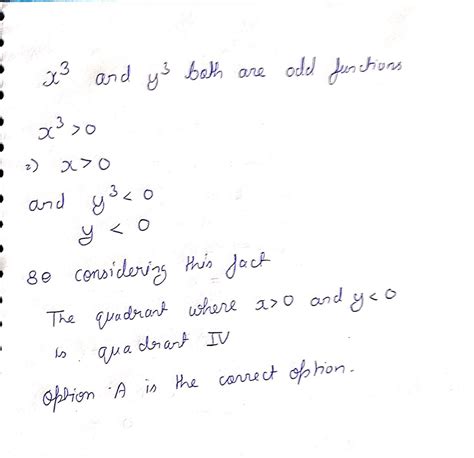 x³ and y³ both are odd functions
x³>0
⇒) x>0
and y³<0
y < 0
So considering this fact
The quadrant where x>0 and y<0
is quadrant IV
Option A is the correct option.